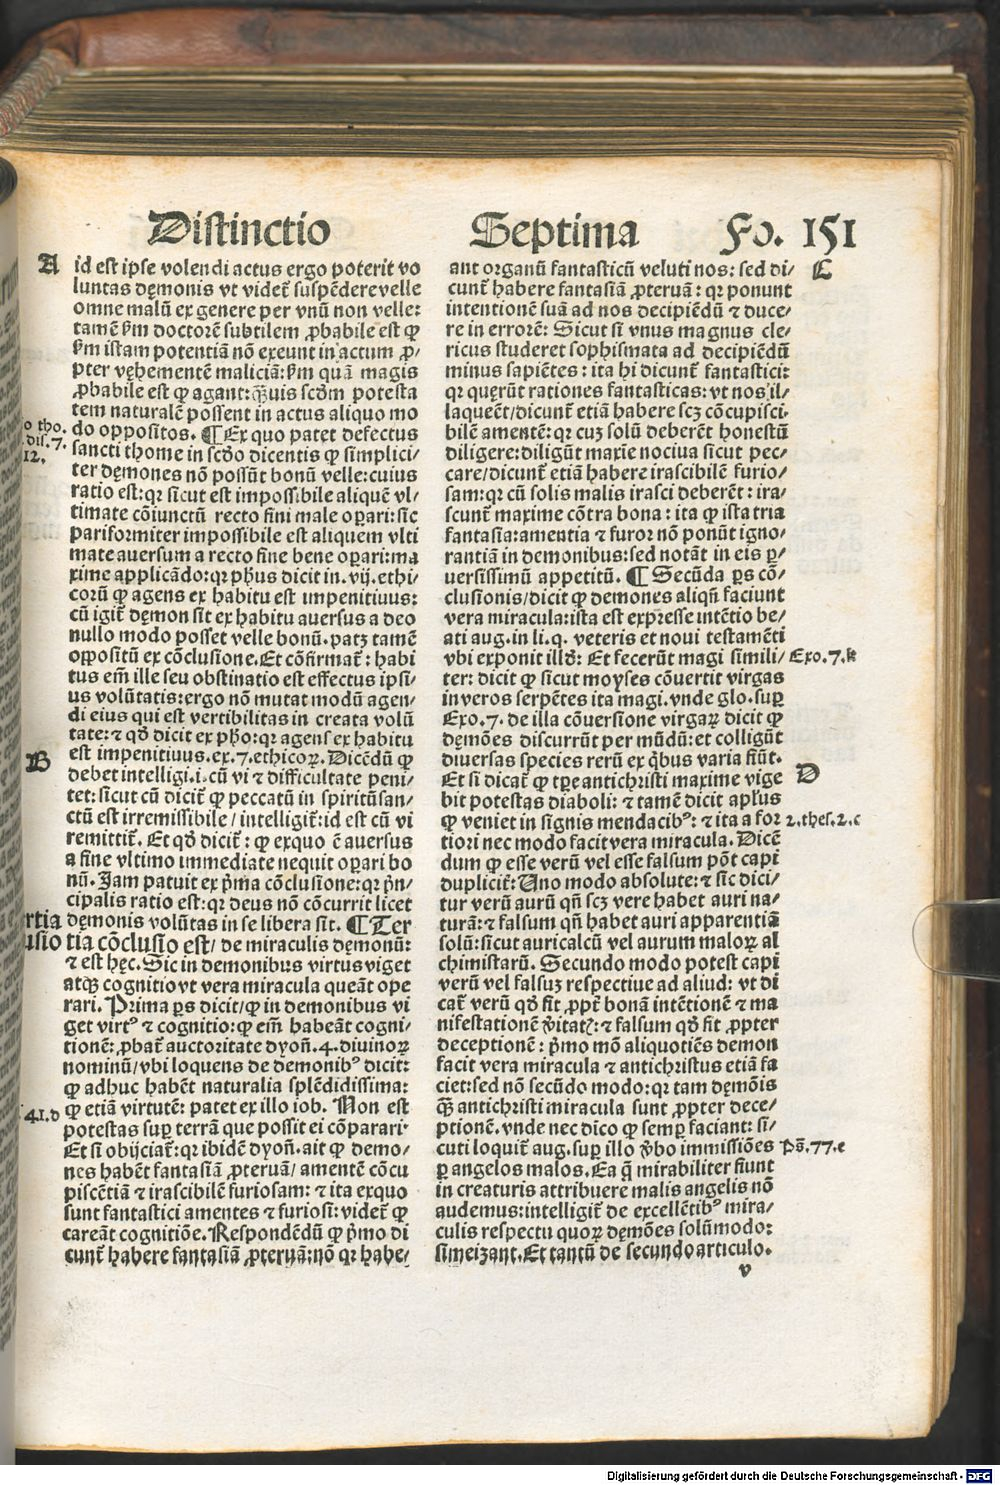 Distinctio Septima Fo. 151
A
id est ipse volendi actus ergo poterit vo
luntas dęmonis vt videt᷑ suspēdere velle
omne malū ex genere per vnū non velle:
tamē ẜm doctorē subtilem ꝓbabile est ꝙ
ẜm istam potentiā nō exeunt in actum ꝓ/
pter vęhementē maliciā: ẜm quā magis
ꝓbabile est ꝙ agant: q̄uis scd̄m potesta
tem naturalē possent in actus aliquo mo
do oppositos. ¶ Ex quo patet defectus
sancti thome in scd̄o dicentis ꝙ simplici/
ter dęmones nō possūt bonū velle: cuius
ratio est: qꝛ sicut est impossibile aliquē vl/
timate cōiunctū recto fini male oꝑari: sic
pariformiter impossibile est aliquem vlti
mate auersum a recto fine bene oꝑari: ma
xime applicādo: qꝛ ph̄us dicit in .vij. ethi/
corū ꝙ agens ex habitu est impenitiuus:
cū igit᷑ dęmon sit ex habitu auersus a deo
nullo modo posset velle bonū. patꝫ tamē
oppositū ex cōclusione. Et cōfirmat᷑: habi
tus em̄ ille seu obstinatio est effectus ipsi/
us volūtatis: ergo nō mutat modū agen/
di eius qui est vertibilitas in creata volū
tate: ⁊ qd̄ dicit ex ph̄o: qꝛ agens ex habitu
est impenitiuus. ex .7. ethicoꝝ. Dicēdū ꝙ
debet intelligi .i. cū vi ⁊ difficultate peni/
tet: sicut cū dicit᷑ ꝙ peccatū in spiritūsan/
ctū est irremissibile / intelligit᷑: id est cū vi
remittit᷑. Et qd̄ dicit᷑: ꝙ exquo ē auersus
a fine vltimo immediate nequit oꝑari bo
nū. Jam patuit ex p̄ma cōclusione: qꝛ p̄n/
cipalis ratio est: qꝛ deus nō cōcurrit licet
demonis volūtas in se libera sit. ¶ Ter
tia cōclusio est / de miraculis dęmonū:
⁊ est hęc. Sic in demonibus virtus viget
atqꝫ cognitio vt vera miracula queāt ope
rari. Prima ꝑs dicit / ꝙ in demonibus vi
get virtꝰ ⁊ cognitio: ꝙ em̄ habeāt cogni/
tionē: ꝓbat᷑ auctoritate dyoñ. 4. diuinoꝝ
nominū / vbi loquens de demonibꝰ dicit:
ꝙ adhuc habēt naturalia splēdidissima:
ꝙ etiā virtutē: patet ex illo iob. Non est
potestas suꝑ terrā que possit ei cōparari.
Et si obijciat᷑: qꝛ ibidē dyoñ. ait ꝙ demo/
nes habēt fantasiā ꝓteruā / amentē cōcu
piscētiā ⁊ irascibilē furiosam: ⁊ ita exquo
sunt fantastici amentes ⁊ furiosi: videt᷑ ꝙ
careāt cognitiōe. Respondēdū ꝙ p̄mo di
cunt᷑ habere fantasiā ꝓteruā: nō qꝛ habe/
o tho.
dis. 7.
12.
B
rtia
usio
41. d
ant organū fantasticū veluti nos: sed di/
cunt᷑ habere fantasiā ꝓteruā: qꝛ ponunt
intentionē suā ad nos decipiēdū ⁊ duce/
re in errorē: Sicut si vnus magnus cle/
ricus studeret sophismata ad decipiēdū
minus sapiētes: ita hi dicunt᷑ fantastici:
qꝛ quęrūt rationes fantasticas: vt nos il/
laqueēt / dicunt᷑ etiā habere scꝫ cōcupisci/
bilē amentē: qꝛ cuꝫ solū deberēt honestū
diligere: diligūt maxie nociua sicut pec/
care / dicunt᷑ etiā habere irascibilē furio/
sam: qꝛ cū solis malis irasci deberēt: ira/
scunt᷑ maxime cōtra bona: ita ꝙ ista tria
fantasia: amentia ⁊ furor nō ponūt igno/
rantiā in demonibus: sed notāt in eis ꝑ/
uersissimū appetitū. ¶ Secūda ꝑs cō/
clusionis / dicit ꝙ demones aliqn̄ faciunt
vera miracula: ista est expresse intētio be/
ati aug. in li. q. veteris et noui testamēti
vbi exponit illd̄: Et fecerūt magi simili/
ter: dicit ꝙ sicut moyses cōuertit virgas
in veros serpētes ita magi. vnde glo. suꝑ
Exo. 7. de illa cōuersione virgaꝝ dicit ꝙ
dęmōes discurrūt per mūdū: et colligūt
diuersas species rerū ex q̇bus varia fiūt.
Et si dicat᷑ ꝙ tꝑe antichristi maxime vige
bit potestas diaboli: ⁊ tamē dicit apl̄us
ꝙ veniet in signis mendacibꝰ: ⁊ ita a for
tiori nec modo facit vera miracula. Dicē
dum ꝙ esse verū vel esse falsum pōt capi
duplicit᷑: Uno modo absolute: ⁊ sic dici/
tur verū aurū qn̄ scꝫ vere habet auri na/
turā: ⁊ falsum qn̄ habet auri apparentiā
solū: sicut auricalcū vel aurum maloꝝ al
chimistarū. Secundo modo potest capi
verū vel falsuꝫ respectiue ad aliud: vt di
cat᷑ verū qd̄ fit ꝓpt᷑ bonā intētionē ⁊ ma
nifestationē v̄itatꝭ: ⁊ falsum qd̄ fit ꝓpter
deceptionē: p̄mo mō aliquotiēs demon
facit vera miracula ⁊ antichristus etiā fa
ciet: sed nō secūdo modo: qꝛ tam dęmōis
q̄ꝫ antichristi miracula sunt ꝓpter dece/
ptionē. vnde nec dico ꝙ semꝑ faciant: si/
cuti loquit᷑ aug. suꝑ illo v̄bo immissiōes
ꝑ angelos malos. Ea q̄ mirabiliter fiunt
in creaturis attribuere malis angelis nō
audemus: intelligit᷑ de excellētibꝰ mira/
culis respectu quoꝝ dęmōes solūmodo:
simeizant. Et tantū de secundo articulo.
C
Exo. 7. k
D
2. thes. 2. c
Ps̄. 77. e
v
Digitalisierung gefördert durch die Deutsche Forschungsgemeinschaft - DFG